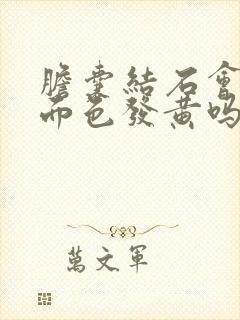 膽囊結石會
面色發黃嗎
萬文軍